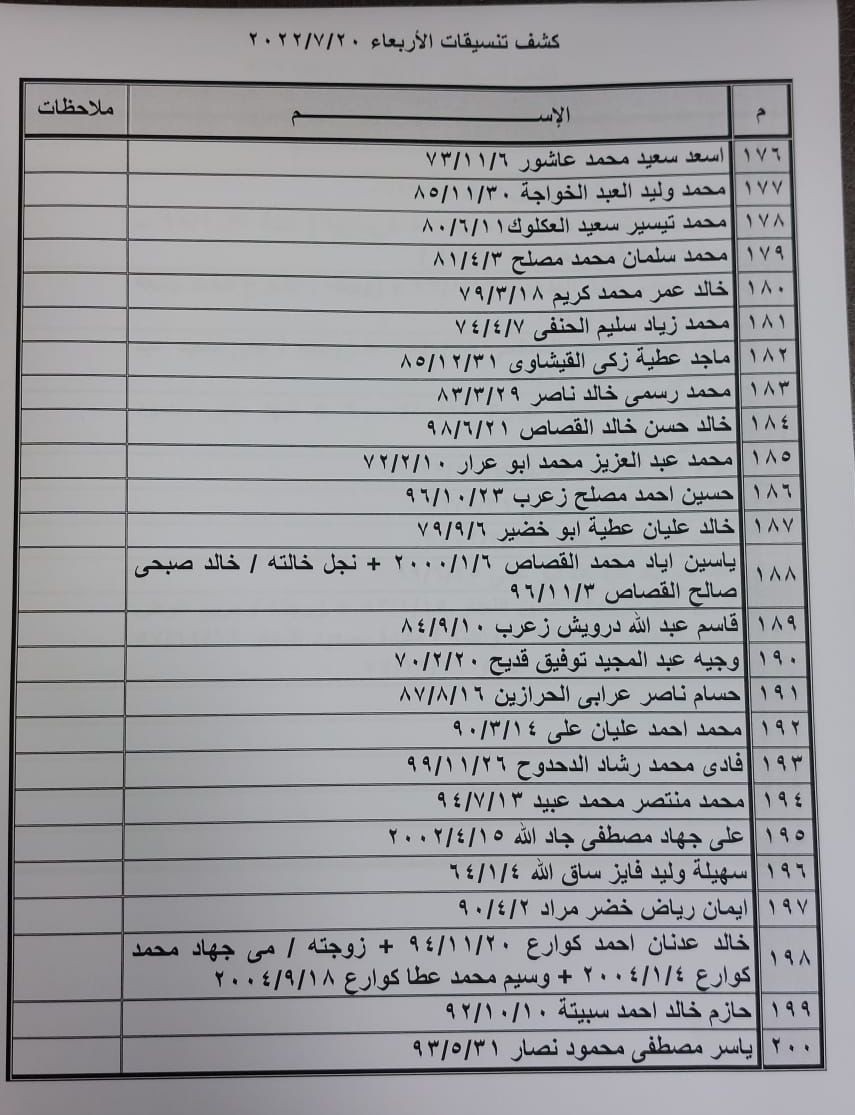 كشف تنسيقات الأربعاء ٢٠٢٢/٧/٢٠
م الإســـــــــــــــــــم ملاحظات
١٧٦ اسعد سعيد محمد عاشور ٧٣/١١/٦
١٧٧ محمد وليد العبد الخواجة ٨٥/١١/٣٠
١٧٨ محمد تيسير سعيد العكلوك٨٠/٦/١١
١٧٩ محمد سلمان محمد مصلح ٨١/٤/٣
١٨٠ خالد عمر محمد كريم ٧٩/٣/١٨
١٨١ محمد زياد سليم الحنفى ٧٤/٤/٧
١٨٢ ماجد عطية زكى القيشاوى ٨٥/١٢/٣١
١٨٣ محمد رسمى خالد ناصر ٨٣/٣/٢٩
١٨٤ خالد حسن خالد القصاص ٩٨/٦/٢١
١٨٥ محمد عبد العزيز محمد ابو عرار ٧٢/٢/١٠
١٨٦ حسين احمد مصلح زعرب ٩٦/١٠/٢٣
١٨٧ خالد عليان عطية ابو خضير ٧٩/٩/٦
١٨٨ ياسين اياد محمد القصاص ٢٠٠٠/١/٦ + نجل خالته / خالد صبحى
صالح القصاص ٩٦/١١/٣
١٨٩ قاسم عبد الله درويش زعرب ٨٤/٩/١٠
١٩٠ وجيه عبد المجيد توفيق قديح ٧٠/٢/٢٠
١٩١ حسام ناصر عرابى الحرازين ٨٧/٨/١٦
١٩٢ محمد احمد عليان على ٩٠/٣/١٤
١٩٣ فادى محمد رشاد الدحدوح ٩٩/١١/٢٦
١٩٤ محمد منتصر محمد عبيد ٩٤/٧/١٣
١٩٥ على جهاد مصطفى جاد الله ٢٠٠٢/٤/١٥
١٩٦ سهيلة وليد فايز ساق الله ٦٤/١/٤
١٩٧ ايمان رياض خضر مراد ٩٠/٤/٢
١٩٨ خالد عدنان احمد كوارع ٩٤/١١/٢٠ + زوجته / مى جهاد محمد
كوارع ٢٠٠٤/١/٤ + وسيم محمد عطا كوارع ٢٠٠٤/٩/١٨
١٩٩ حازم خالد احمد سبيتة ٩٢/١٠/١٠
٢٠٠ ياسر مصطفى محمود نصار ٩٣/٥/٣١